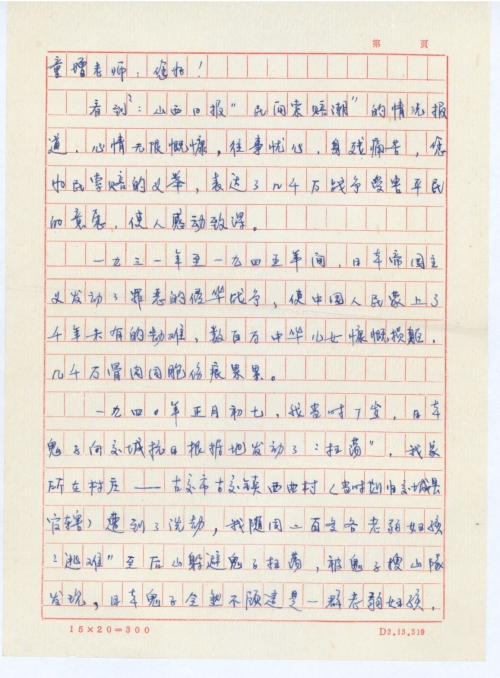 第　　頁
童增老师：您好！
看到"山西日报"民间索赔潮"的情况报
道，心情无限慨慷，往事忧心，身残痛苦，您
为民索赔的义举，表达了几千万战争受害平民
的意愿，使人感动致深。
一九三一年至一九四五年间，日本帝国主
义发动了罪恶的侵华战争，使中国人民蒙上了
千年未有的劫难，数百万中华儿女慷慨损躯，
几千万骨肉同胞伤痕累累。
一九四〇年正月初七，我当时7岁，日本
鬼子向交城抗日根据地发动了"扫荡"，我家
所在村庄——古交市古交镇西曲村（当时划归交城县
管辖）遭到了洗劫，我随同二百多名老弱妇孩
"逃难"至后山躲避鬼子扫荡，被鬼子搜山队
发现，日本鬼子全然不顾这是一群老弱妇孩，
15×20=300
D2.13.319